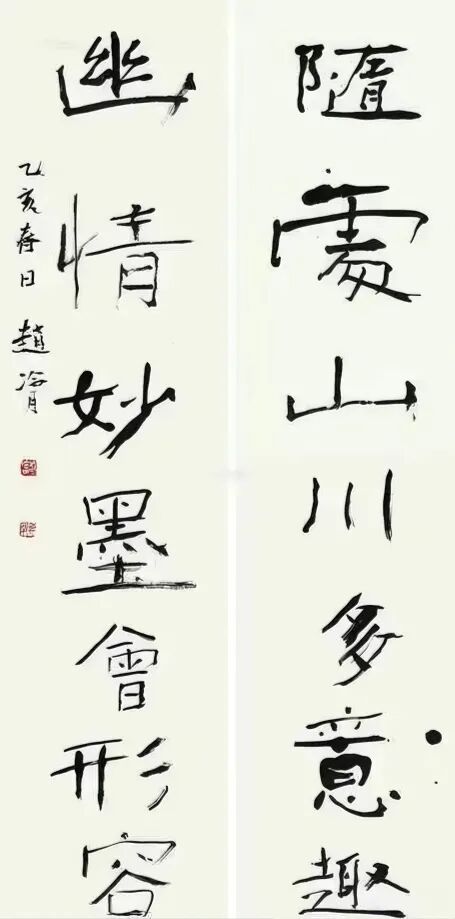 隨處山川多意趣
幽情妙墨會形容
乙亥春日
趙冷月